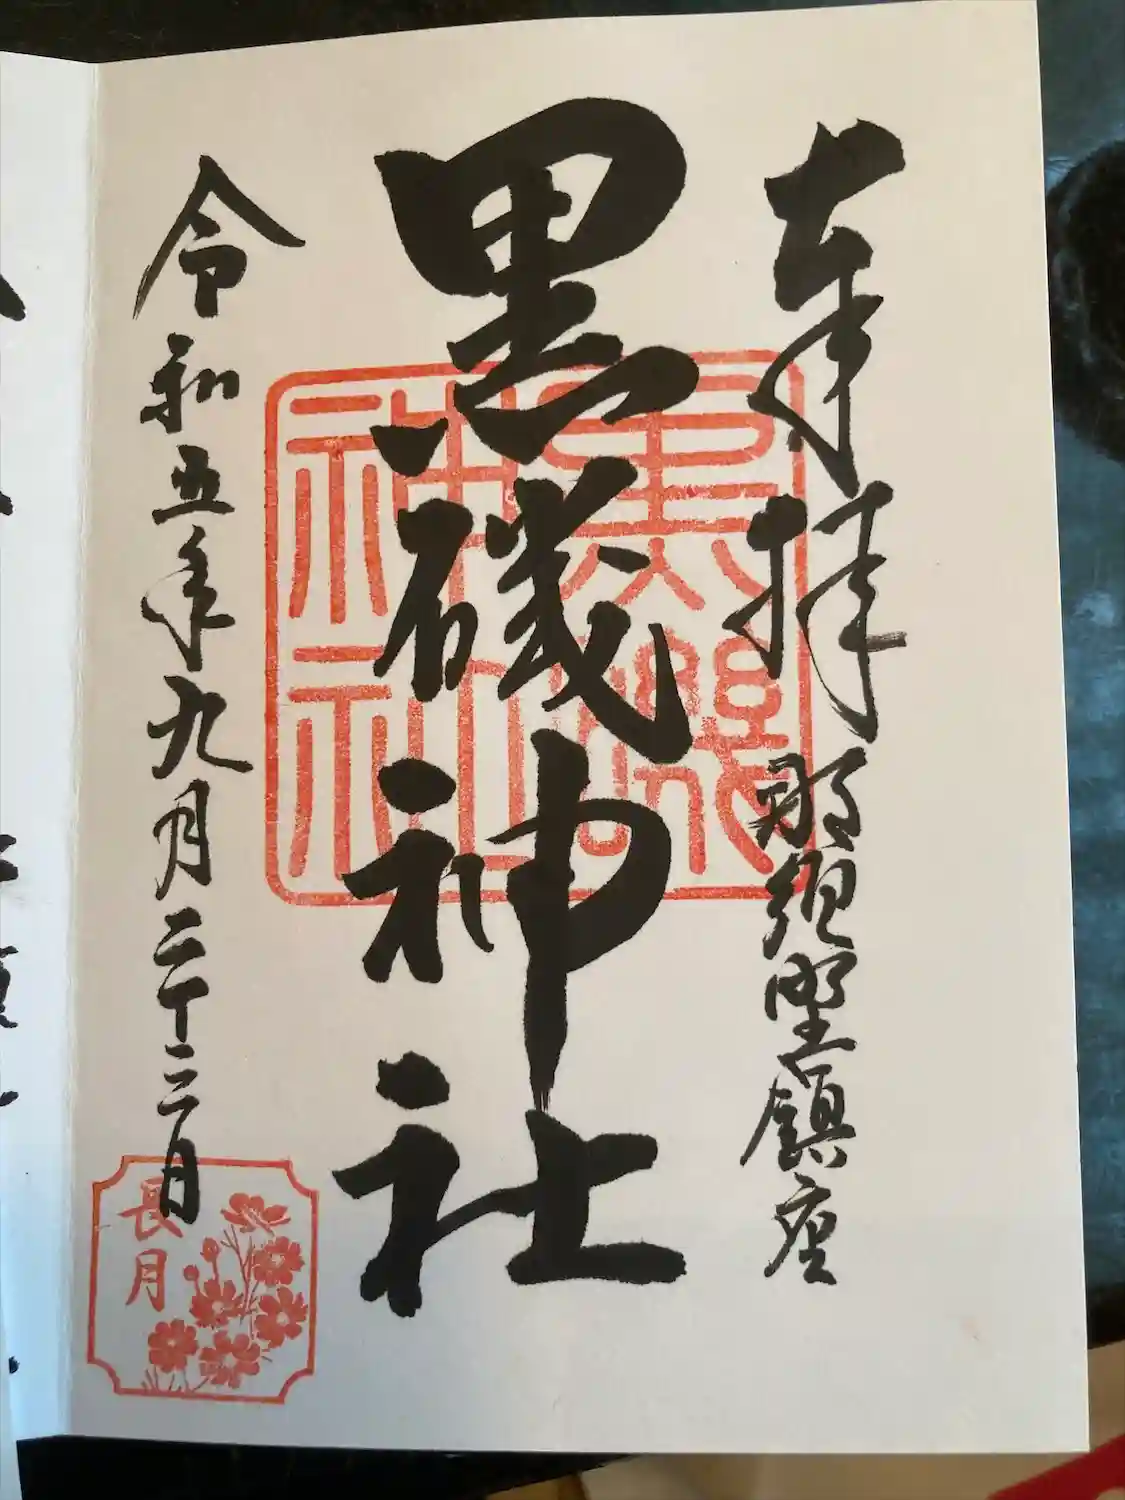 奉拝 那須野鎮座
黒磯神社
令和五年九月二十三日
黒磯
神社
長月